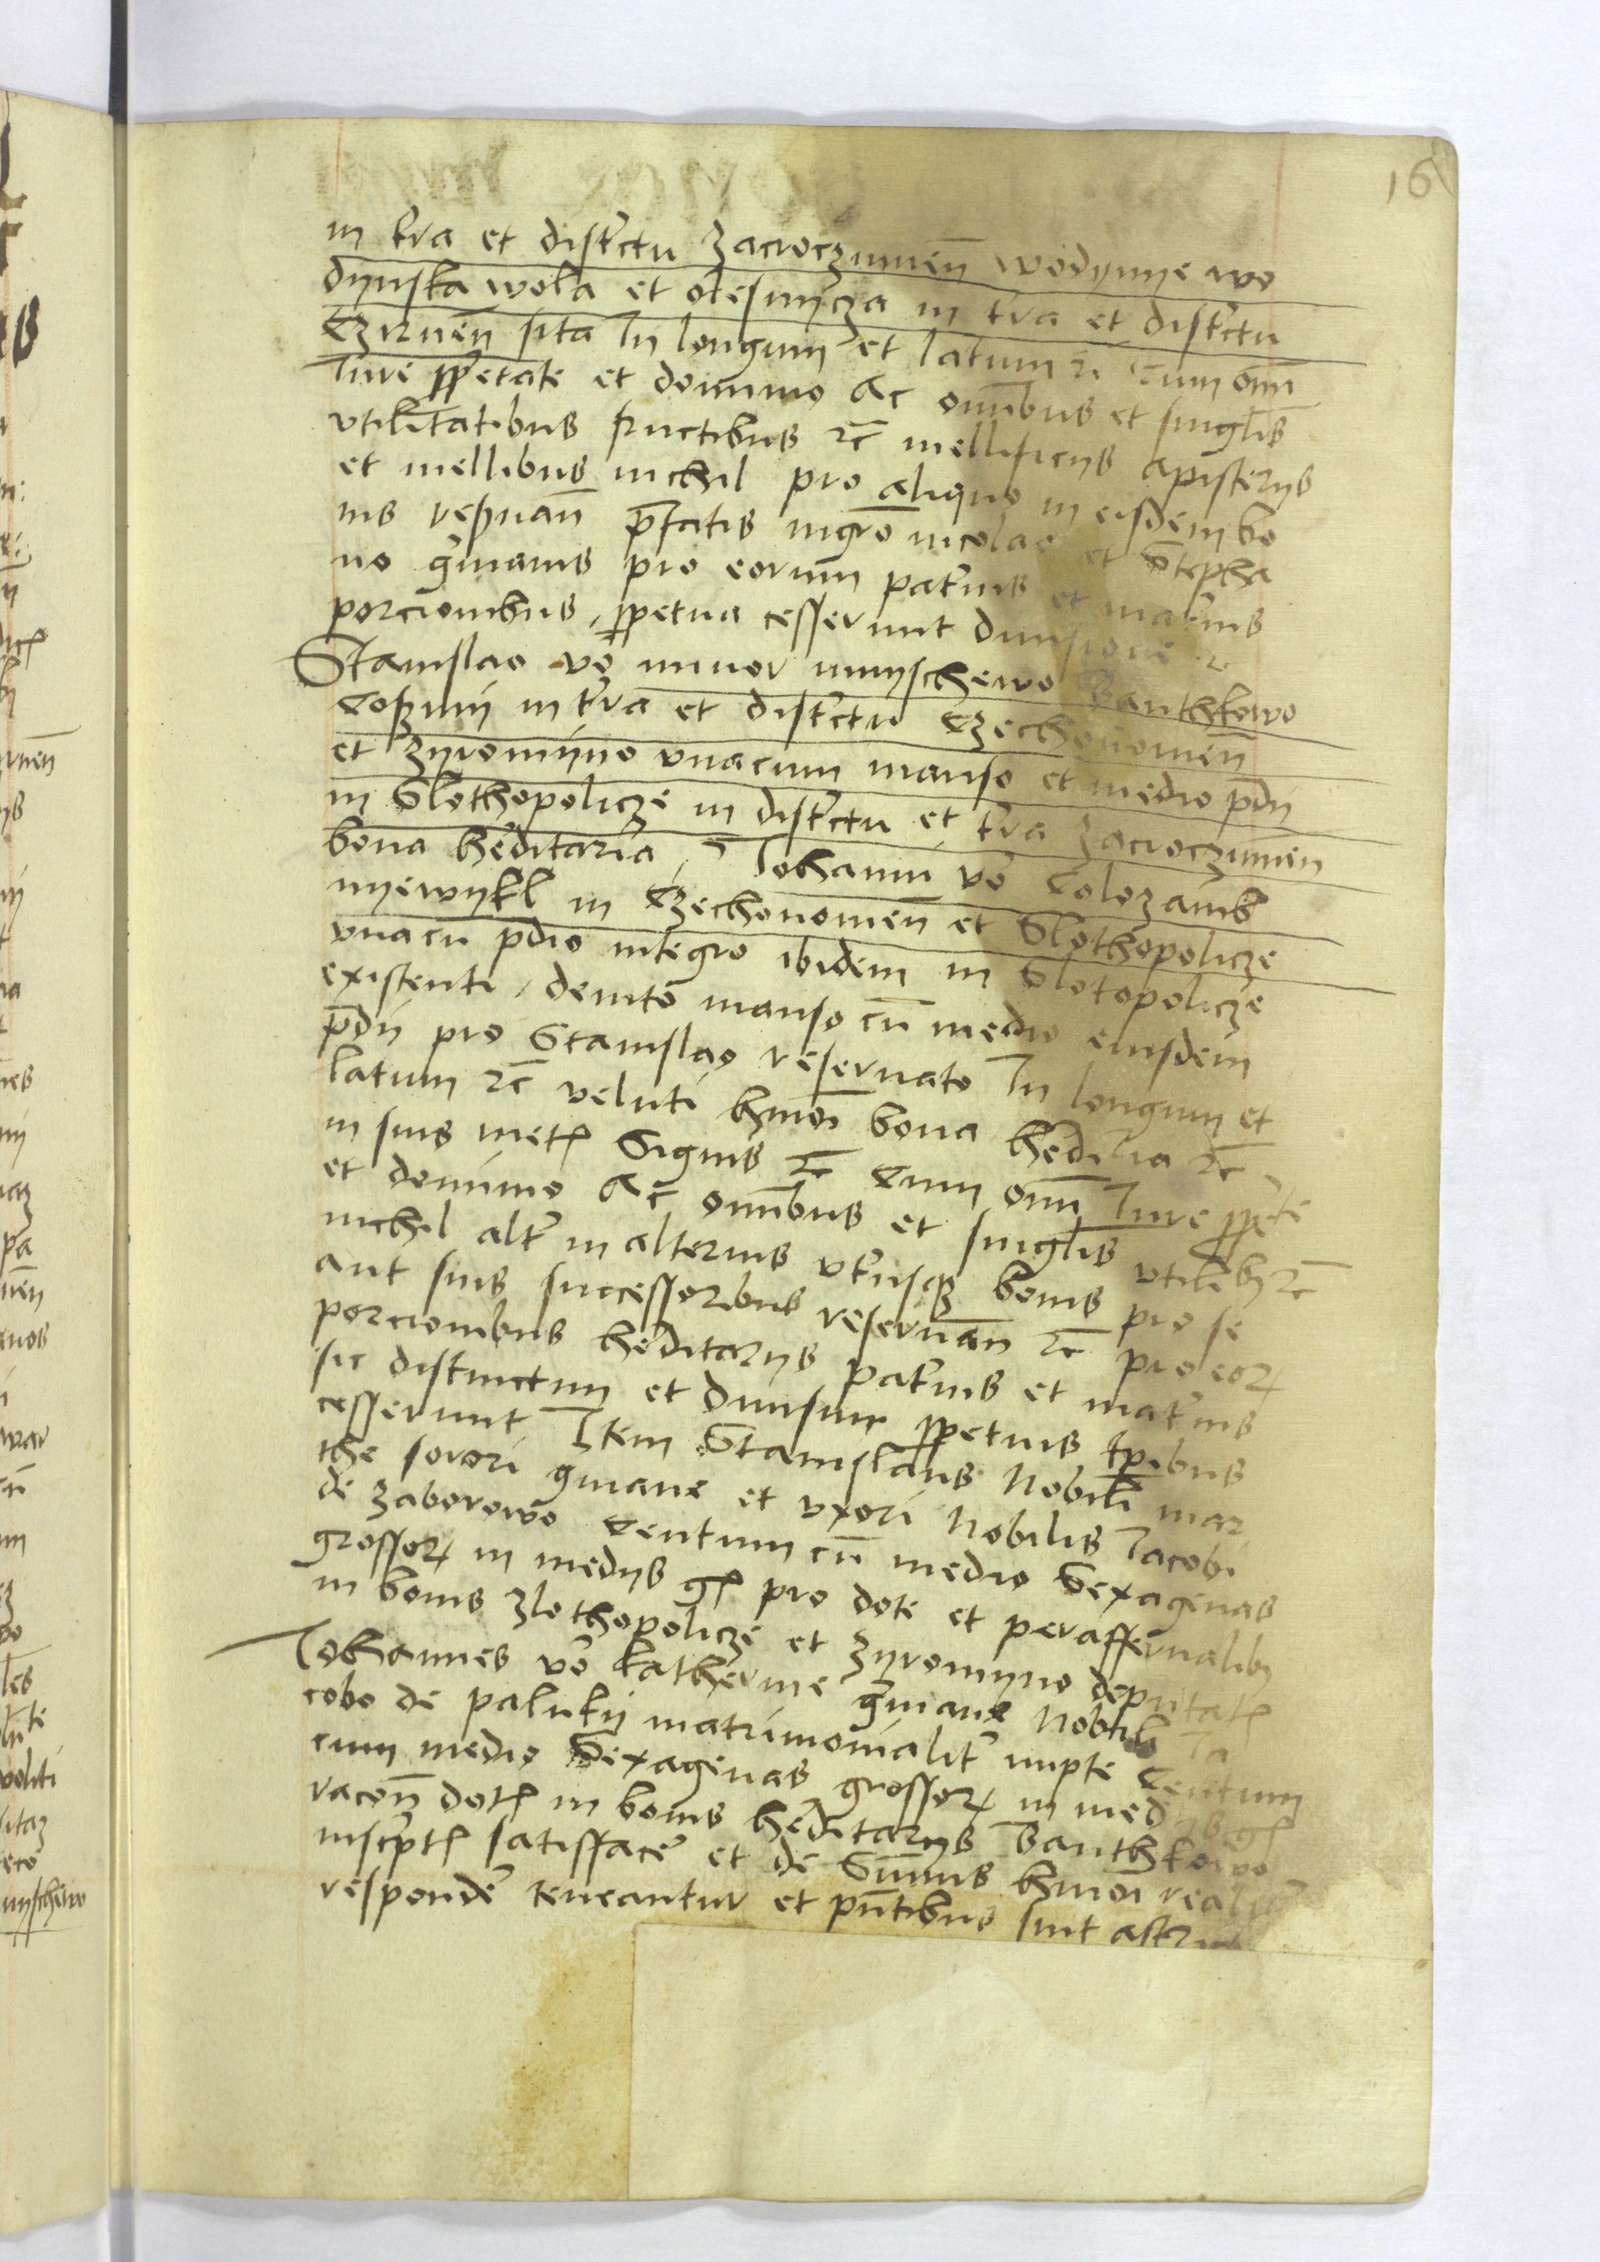 16
in tra et districtu Zacroczimen̄ Wodynye wo
dynska wola et olesnycza in tra et districtu
Czirnen̄ sita In longum et latum ꝛc cum om̄i
Iure ꝓpetate et dominio Ac om̄ibus et singlis
vtilitatibus fructibus ꝛc̄ mellificijs apisterijs
et mellibus nichil pro aliquo in eisdem bo
nis reseruan̄ p̄fatis nigro nicolao et Stepha
no gmanis pro eorum paternis et maternis
porcionibus, ꝑpetua cesserunt diuisione ꝛc
Stanislao vo minor mnyschewo Banthkowo
Coszmij in tra et districtu Czechonomen̄
et Zyromyno vnacum manso et medio p̄dij
in Slothopolicze in districtu et tra Zacroczimen̄
bona heditaria, Iohanni vo Colozamb
nyewykl in Czechonomen̄ et Slothopolicze
vnacū p̄dio integro ibidem in Slotopolicze
existenti, dempto manso cū medio eiusdem
p̄dij pro Stanislao reseruato In longum et
latum ꝛc̄ veluti hmōi bona hedilia ꝛc̄
in suis metꝭ Signis ꝛc̄ Cum om̄i Iure ꝓpte
et dominio Ac om̄ibus et singlis vtilibꝫ ꝛc̄
nichil altr in alterius vtriusqꝫ bonis pro se
aut suis successoribus reseruan̄ ꝛc̄ pro eoꝝ
porcionibus heditarijs paternis et maternis
sic distinctim et diuisim ꝑpetuis tꝑibus
cesserunt Item Stanislaus Nobili mar
the sorori gmane et vxori Nobilis Iacobi
de Zaborowo Centum cū medio Sexagenas
grossoꝝ in medijs gꝭ pro dote et paraffernalibꝫ
in bonis Zlothopolicze et Zyromyno deputatꝭ
Iohannes vo katherine gmane Nobili Ia
cobo de paluky matrimonialitr nupte Centum
cum medio Sexagenas grossoꝝ in medijs gꝭ
racōn̄ dotꝭ in bonis heditarijs Banthkowo
inscptꝭ satisfacer et de Sum̄is hmōi realitr
responder teneantur et pn̄tibus sint astri